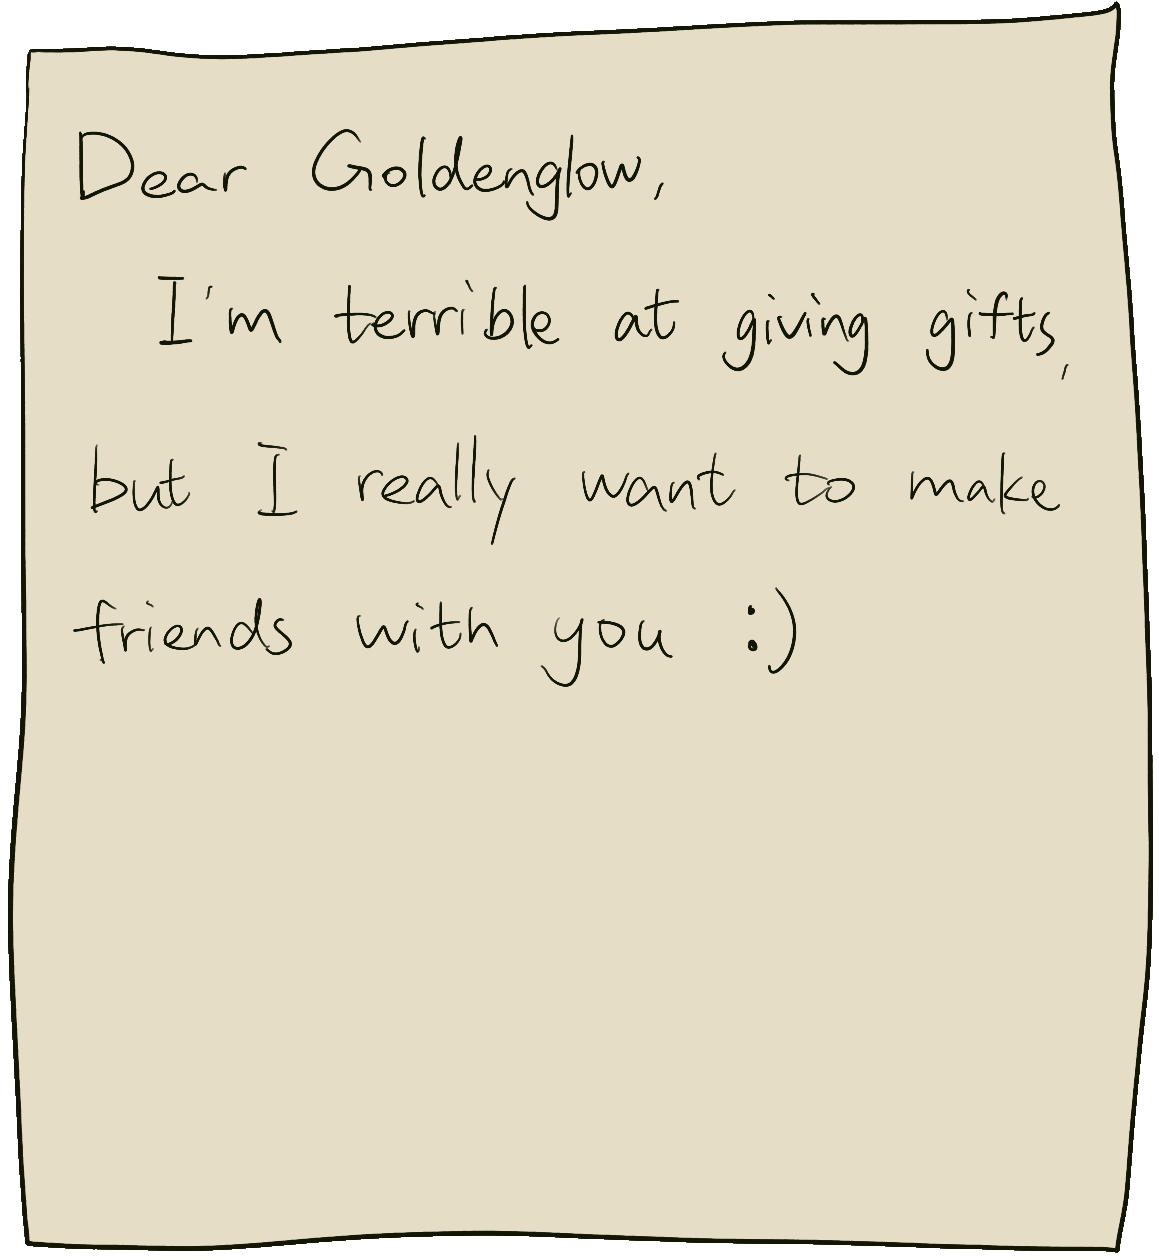 Dear Goldenglow,
I'm terrible at giving gifts,
but I really want to make
friends with you :)